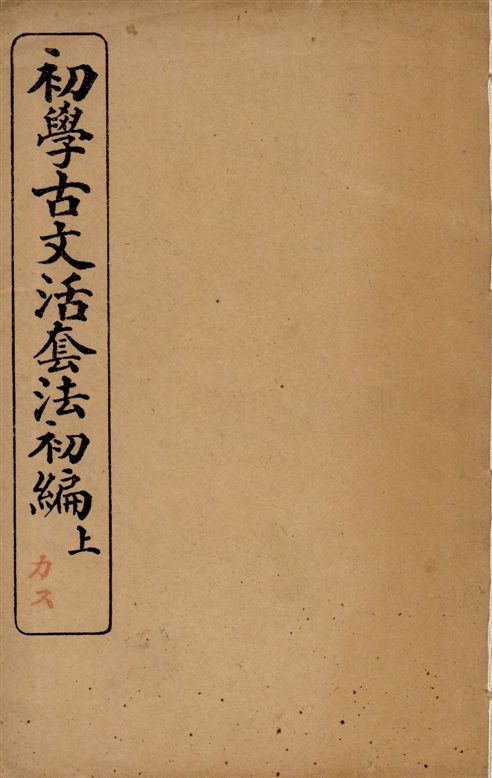 初學古文活套法初編上
カス